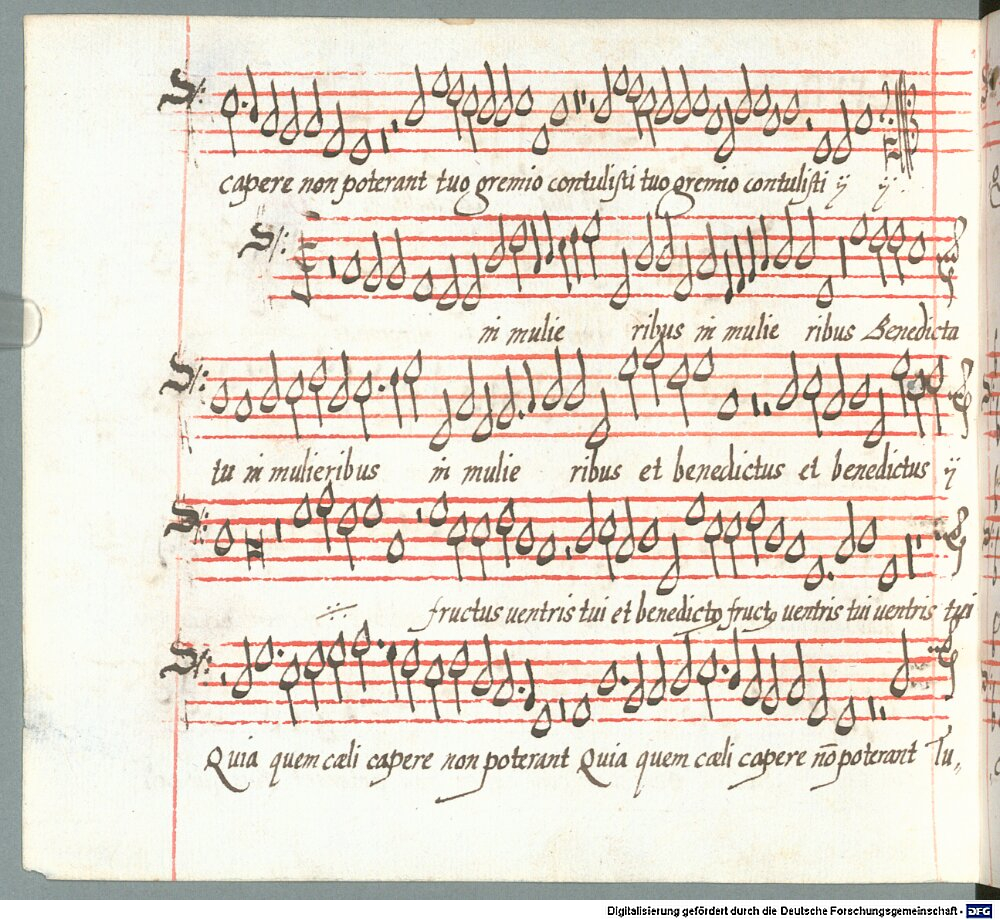 capere non poterant tuo gremio contulisti tuo gremio contulisti ij ij
in mulie ribus in mulie ribus Benedicta
tu in mulieribus in mulie ribus et benedictus et benedictus ij
fructus uentris tui et benedictꝯ fructꝯ uentris tui uentris tui
Quia quem cæli capere non poterant Quia quem cæli capere nō poterant Tu„
Digitalisierung gefördert durch die Deutsche Forschungsgemeinschaft - DFG